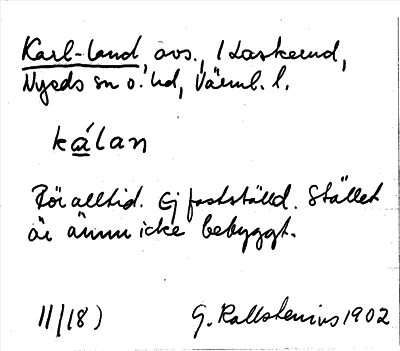 Karl-land, avs., i Laskerud,
Nyeds sn o. hd, Värml. l.
kálan
För alltid. Ej fastställd. Stället
är ännu icke bebyggt.
11/18) G. Kallstenius 1902